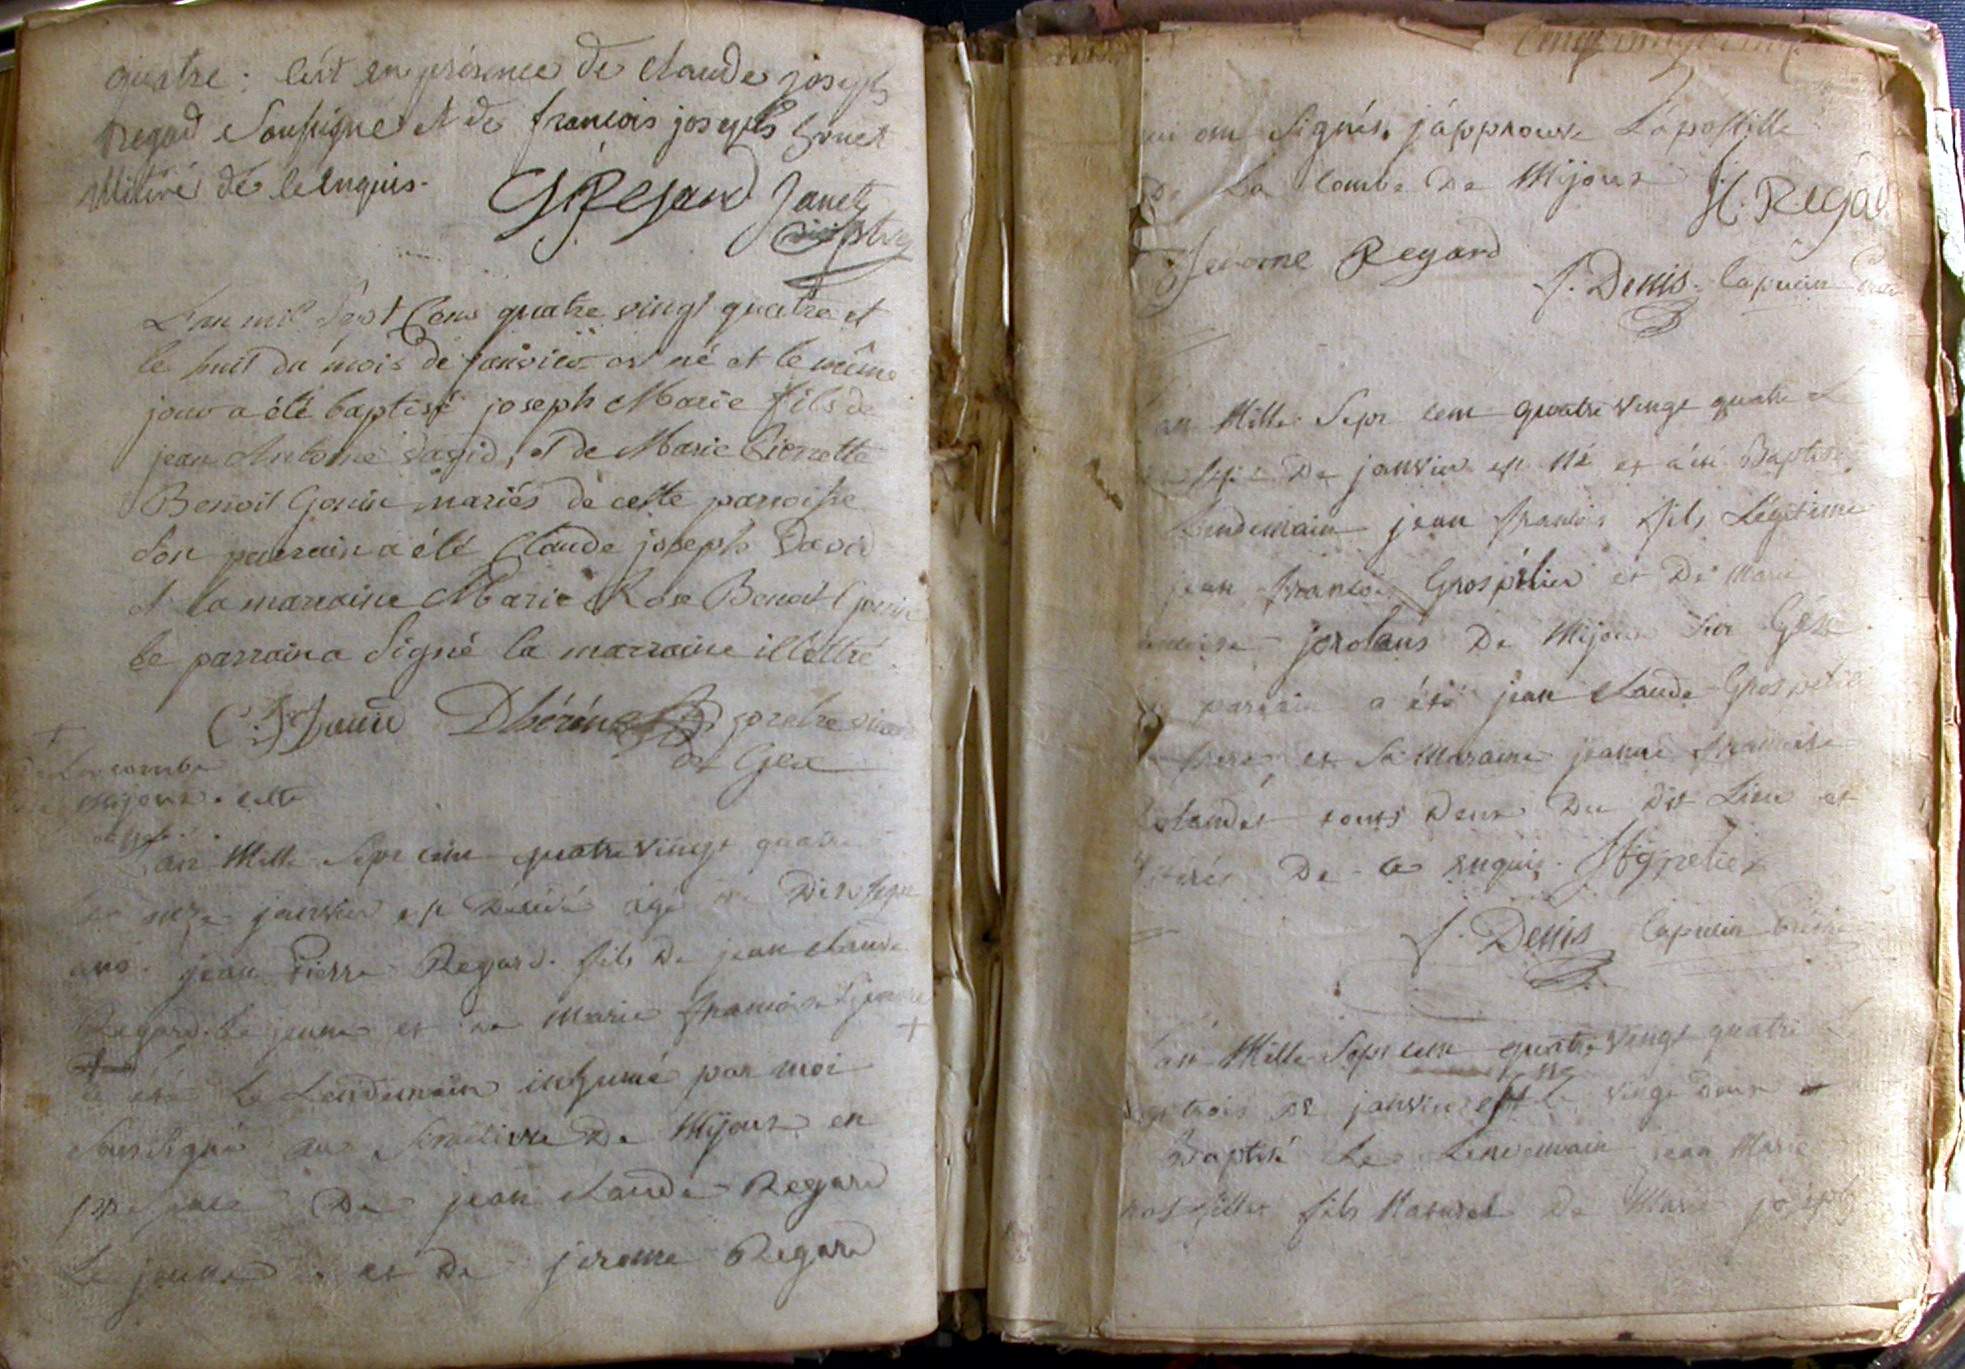 quatre. c'est en présence de claude joseph
Regad Soussigné et de françois joseph
illitéré de ce enquis.
GJRegard Janet
L'an mil Sept Cens quatre vingt quatre et
le huit du mois de janvier est né et le même
jour a été baptisé joseph Marie fils de
jean Antoine david, et de Marie Pierrette
Benoit Gonin mariés de cette paroisse
Son parrain a été Claude joseph David
et la marraine Marie Rose Benoit Gonin
le parrain a Signé la marraine illettré.
prètre vicaire
de Gex
+
De La combe
De Mijoux. cette
L'an Mille Sept cent quatre vingt quatre
le onze janvier est Décédé agé de Dix sept
ans. jean Pierre Regard. fils De jean claude
Regard. Le jeune et de Marie françoise +
a été Le Lendemain inhumé par moi
Soussigné au Simétiere De Mijoux en
présence De jean claude Regard
Le jeune et de jerome Regard
qui ont Signés. j'approuve L'apostille
De La Combe De Mijoux
J.C. Regad
Jerome Regard
f. Denis. Capucin
L'an Mille Sept cent quatre vingt quatre Le
De janvier est Né et a été Baptisé
Lendemain jean françois fils Légitime
jean françois Grospélier et De Marie
De Mijoux Sur Gex
parrain a été jean claude Grospelier
frere et Sa Maraine jeanne françoise
tous Deux Du Dit Lieu et
De ce enquis. JfGpelier
f. Denis Capucin Prêtre
L'an Mille Sept cent quatre vingt quatre Le
trois de janvier né Le vingt Deux
Baptisé Le Lendemain jean Marie
fils Naturel De Marie joseph